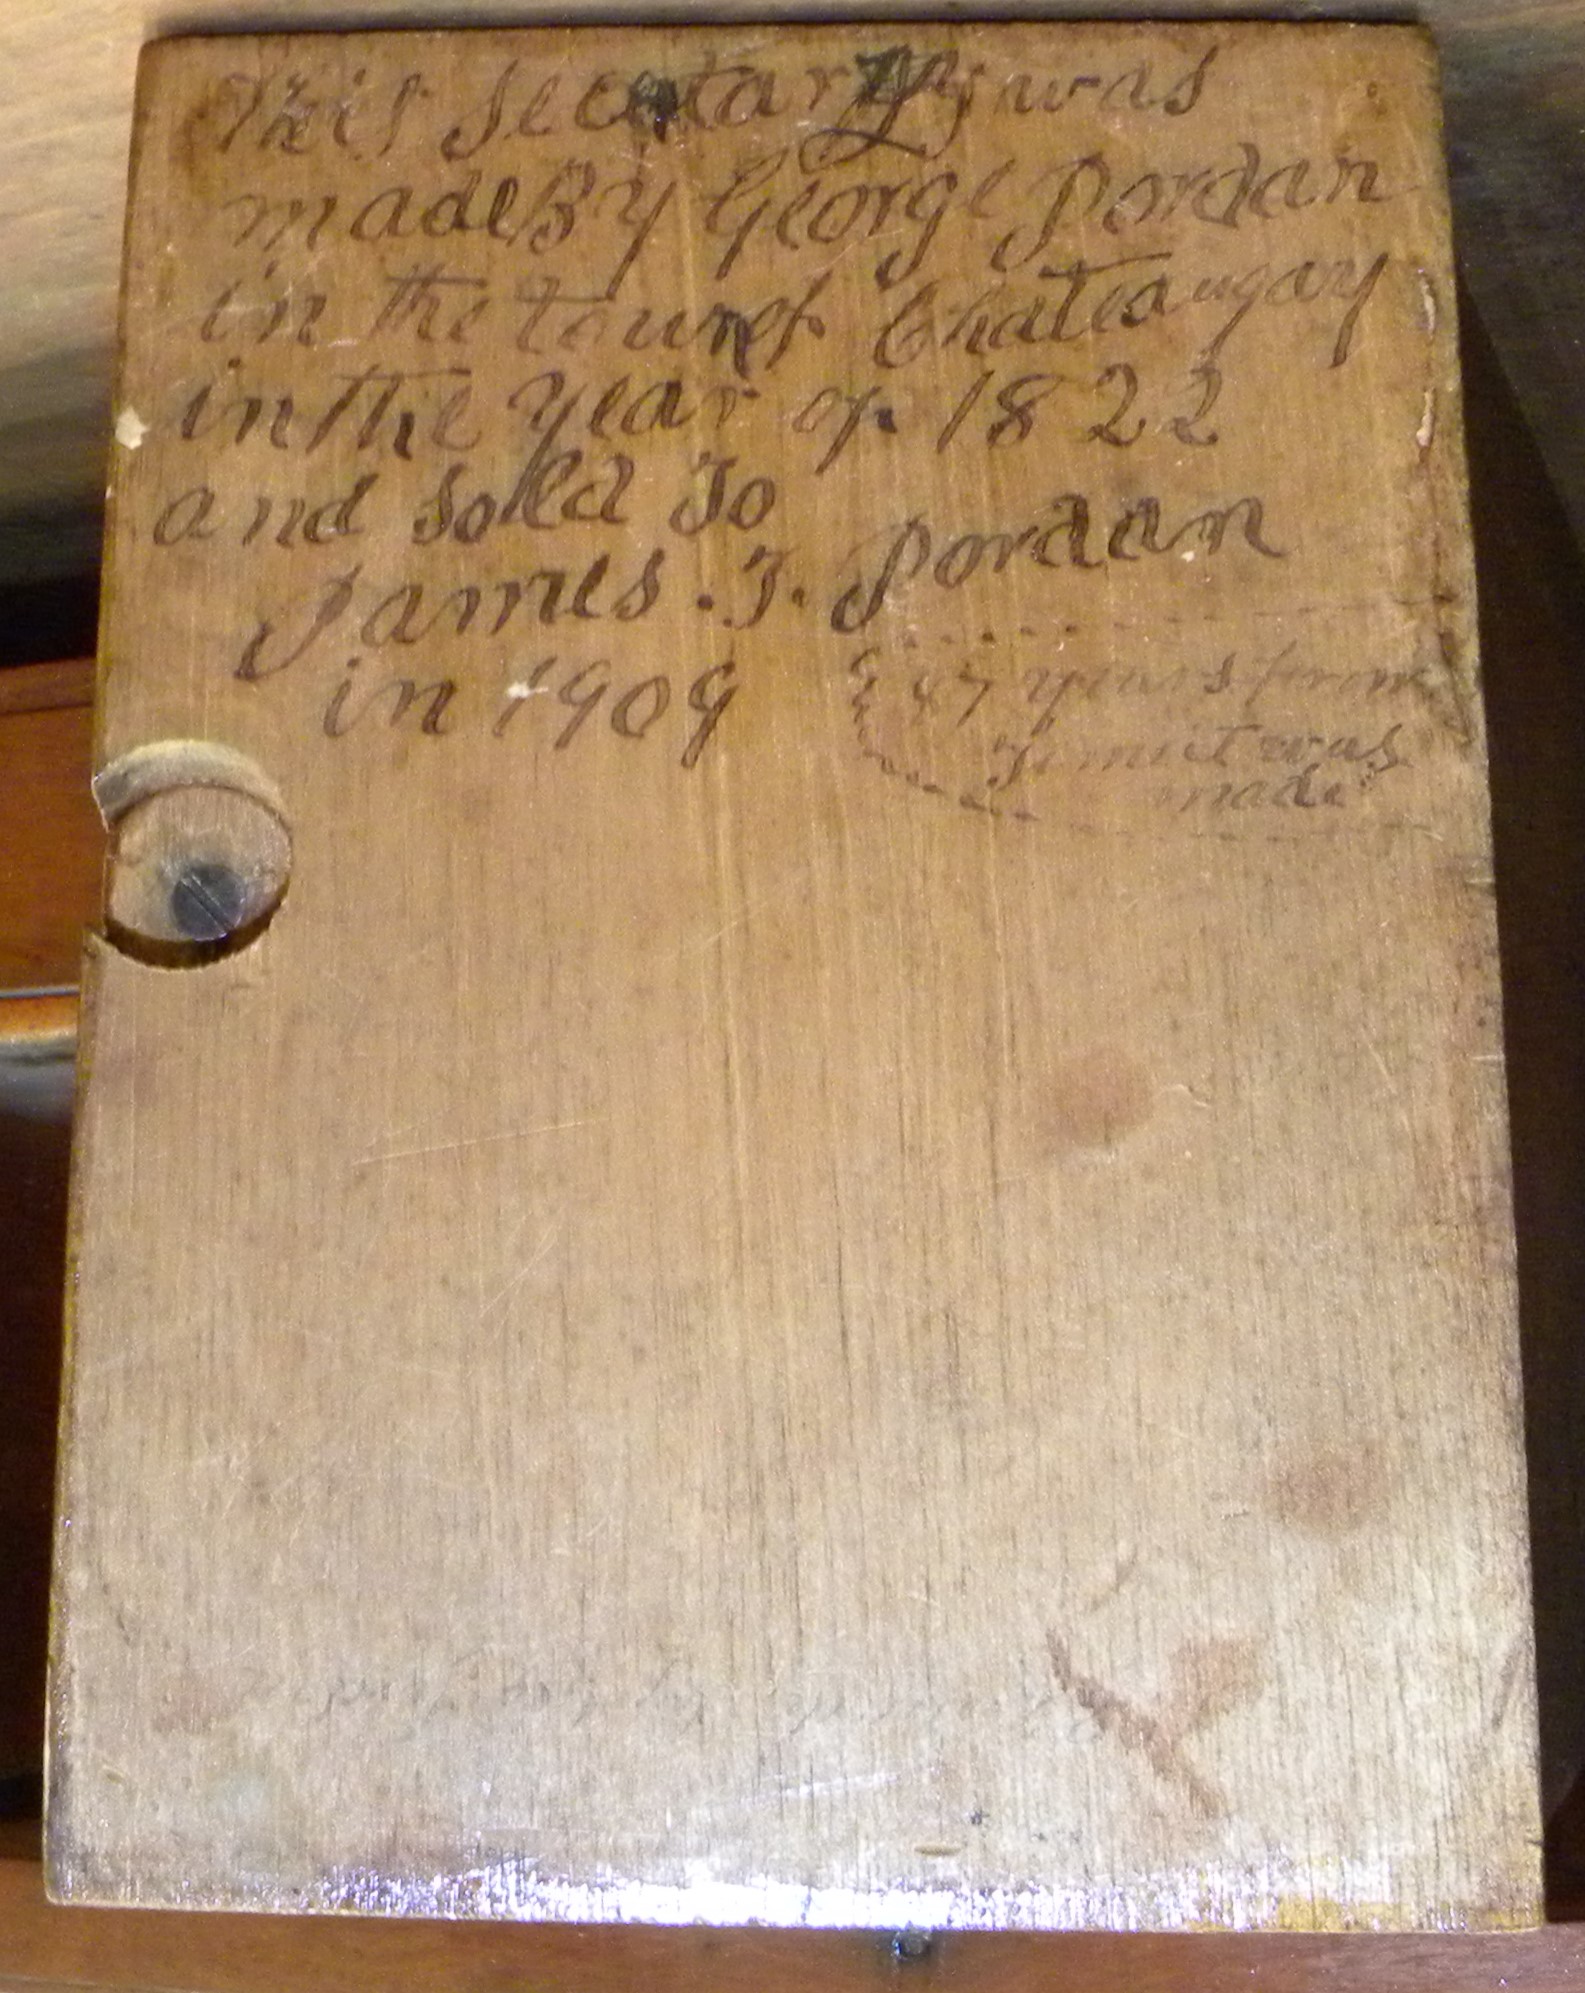 This Secetary was
made By George Jordan
in the town of Chateaugay
in the year of 1822
and Solld To
James . T. Jordan
in 1909
87 years from
Time it was
made